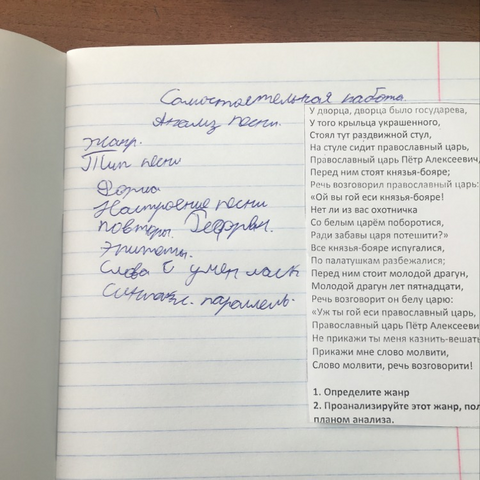 Самостоятельная работа
Анализ песни.
Жанр.
Тип песни
Форма
Настроение песни
повторы. Рефрен.
Эпитеты.
Слова с умен ласк
Синтакс. параллель.
У дворца, дворца было государева,
У того крыльца украшенного,
Стоял тут раздвижной стул,
На стуле сидит православный царь,
Православный царь Пётр Алексеевич,
Перед ним стоят князья-бояре;
Речь возговорил православный царь:
«Ой вы гой еси князья-бояре!
Нет ли из вас охотничка
Со белым царём поборотися,
Ради забавы царя потешити?»
Все князья-бояре испугалися,
По палатушкам разбежалися;
Перед ним стоит молодой драгун,
Молодой драгун лет пятнадцати,
Речь возговорит он белу царю:
«Уж ты гой еси православный царь,
Православный царь Пётр Алексеевич
Не прикажи ты меня казнить-вешать
Прикажи мне слово молвити,
Слово молвити, речь возговорити!
1. Определите жанр
2. Проанализируйте этот жанр, пол
планом анализа.